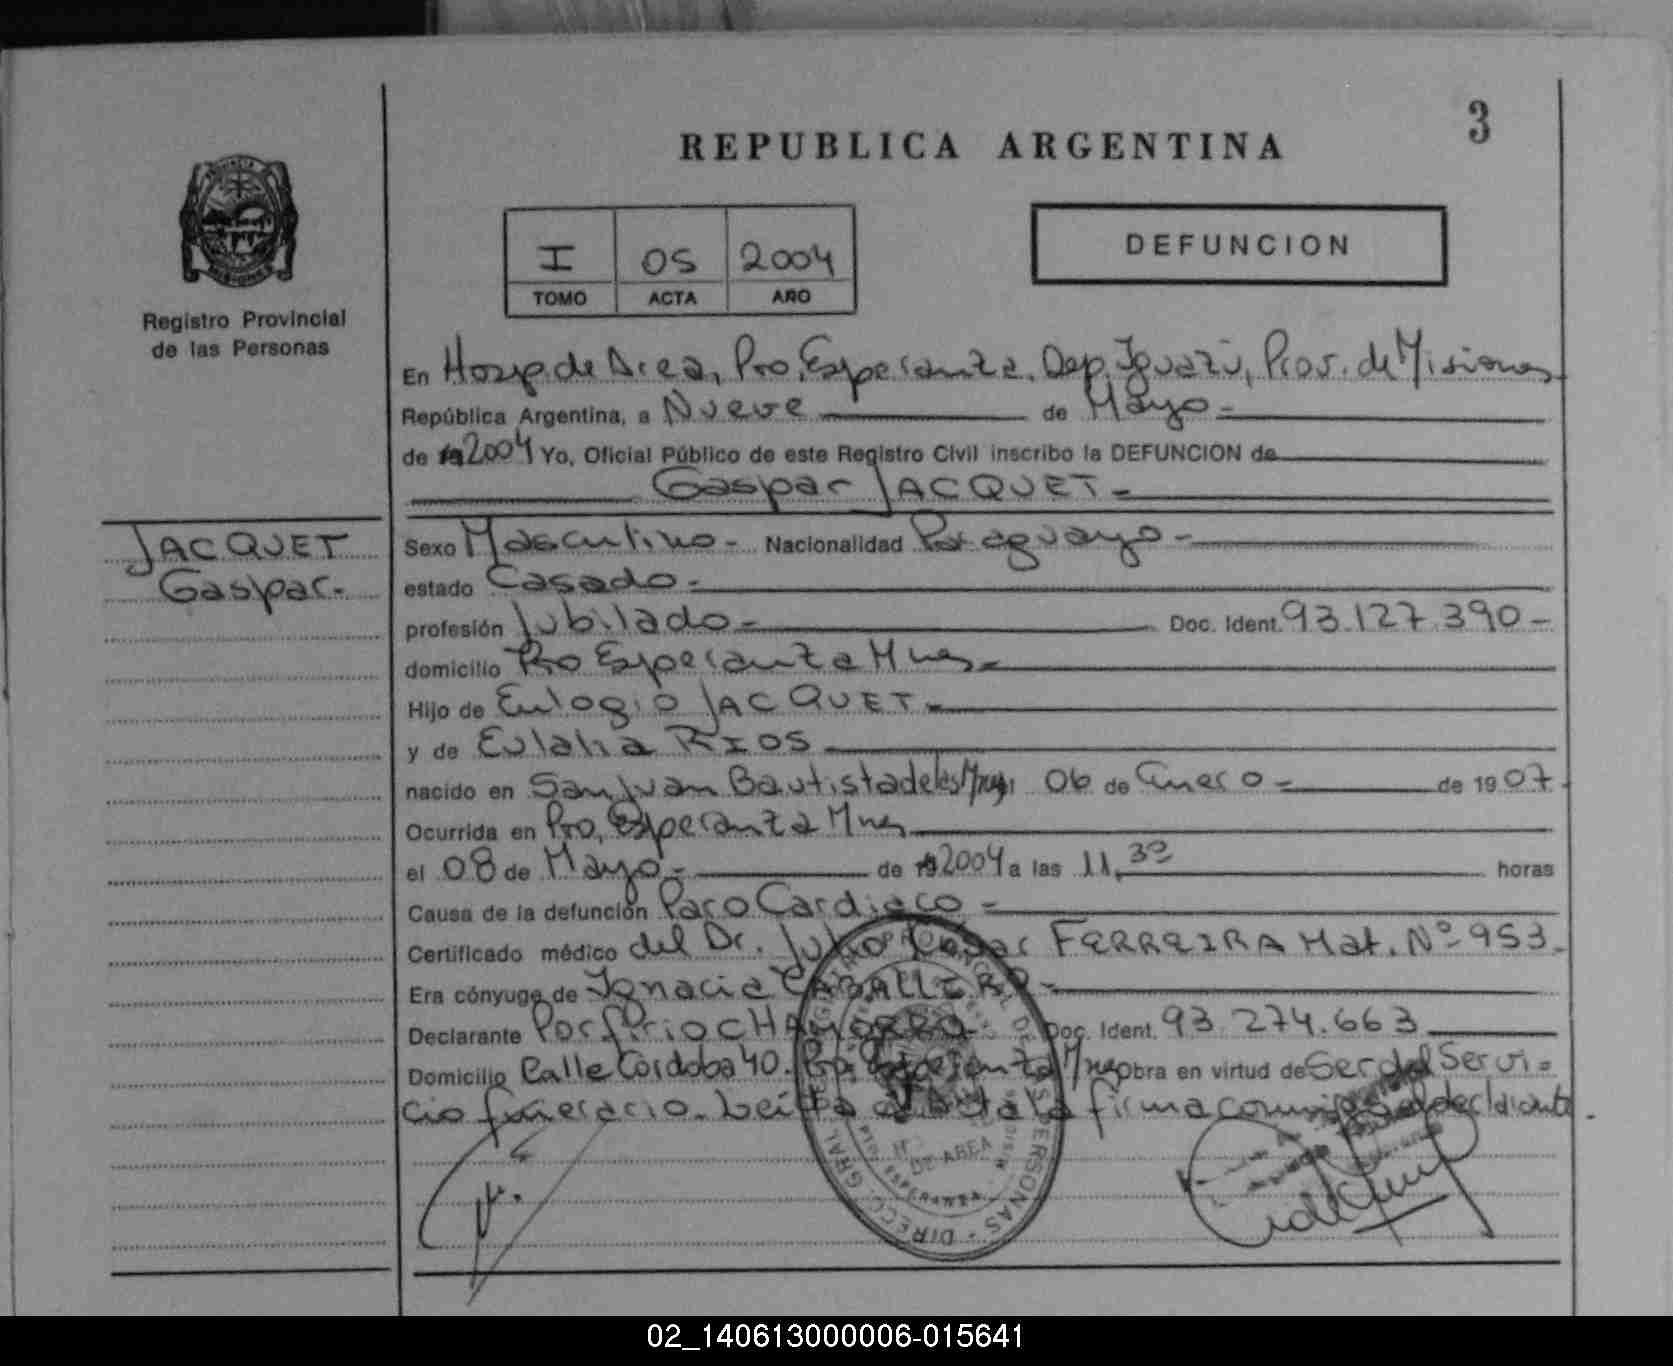 3
REPUBLICA ARGENTINA
DEFUNCION
I 05 2004
TOMO ACTA AÑO
Registro Provincial
de las Personas
En Hosp. de Area, Pto. Esperanza, Dep. Iguazú, Prov. de Misiones
República Argentina, a Nueve de Mayo -
de 19 2004 Yo, Oficial Público de este Registro Civil inscribo la DEFUNCION de
Gaspar JACQUET -
JACQUET
Gaspar -
Sexo Masculino - Nacionalidad Paraguayo -
estado Casado -
profesión Jubilado - Doc. Ident. 93.127.390 -
domicilio Pto Esperanza Mnes -
Hijo de Eulogio JACQUET -
y de Eulalia RIOS
nacido en San Juan Bautista de las 06 de Enero - de 1907 -
Ocurrida en Pto. Esperanza Mnes
el 08 de Mayo - de 19 2004 a las 11,30 horas
Causa de la defunción Paro Cardiaco -
Certificado médico del Dr. Julio Cesar FERREIRA Mat. Nº 953 -
Era cónyuge de Ignacia CABALLERO -
Declarante Porfirio CHAMORRO Doc. Ident. 93.274.663
Domicilio Calle Cordoba 40. Pto. Esperanza Mnes obra en virtud de Ser del Servi-
cio funerario. Leida el Acta la firma conmigo el declarante -
DE AREA
PTO. ESPERANZA - MISIONES
02_140613000006-015641